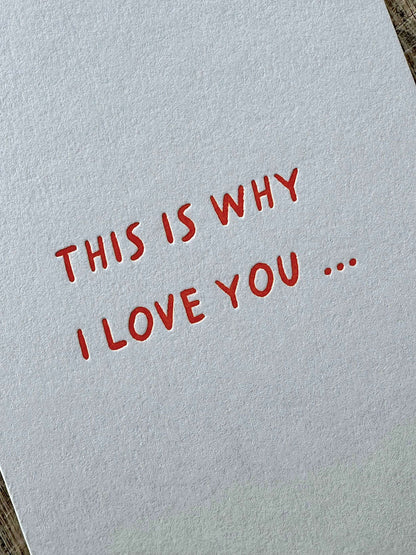 THIS IS WHY
I LOVE YOU ...